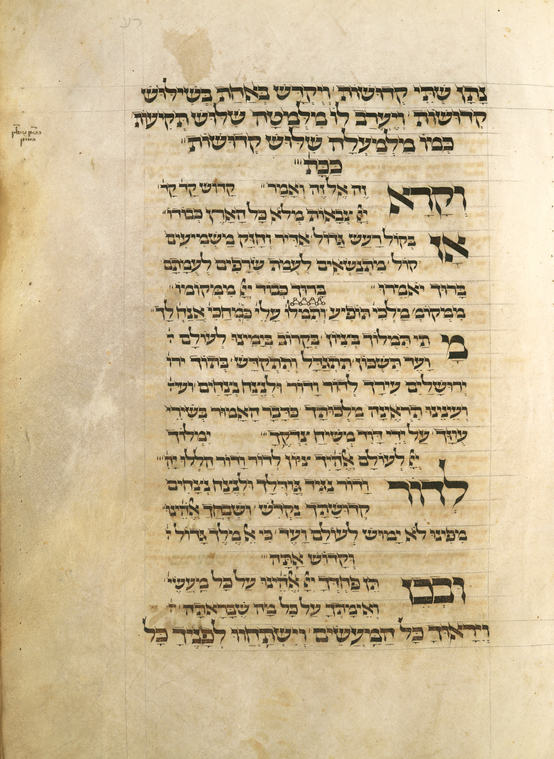 נתן שתי קדושות וקדש באחת בשילוש
קדושות ויערב לו מלמטה שלוש תקיעות
כמו מלמעלה שלוש קדושות
ככת
וקרא זה אל זה ואמר קדוש קד קד
יי צבאות מלא כל הארץ כבודו
אז בקול רעש גדול אדיר וחזק משמיעים
קול מתנשאים לעמת שרפים לעמתם
ברוך יאמרו ברוך כבוד יי ממקומו
ממקומ' מלכי תופיע ותמלו' עלי' כי מחכי אנח לך
מתי תמלוך בציון בקרוב בימינו לעולם ו
ועד תשכון תתגדל ותתקדש בתוך ירו
ירושלים עירך לדור ודור ולנצח נצחים ועי
ועינינו תראנה מלכותך כדבר האמור בשירי
עוזך על ידי דוד משיח צדקך ימלוך
יי לעולם אלהיך ציון לדור ודור הללויה
לדור ודור נגיד גודלך ולנצח נצחים
קדושתך נקדש ושבחך אלהינו
מפינו לא ימוש לעולם ועד כי א מלך גדול ו
וקדוש אתה
ובכן תן פחדך יי אלהינו על כל מעשי
ואימתך על כל מה שבראתה
וייראוך כל המעשים וישתחוו לפניך כל